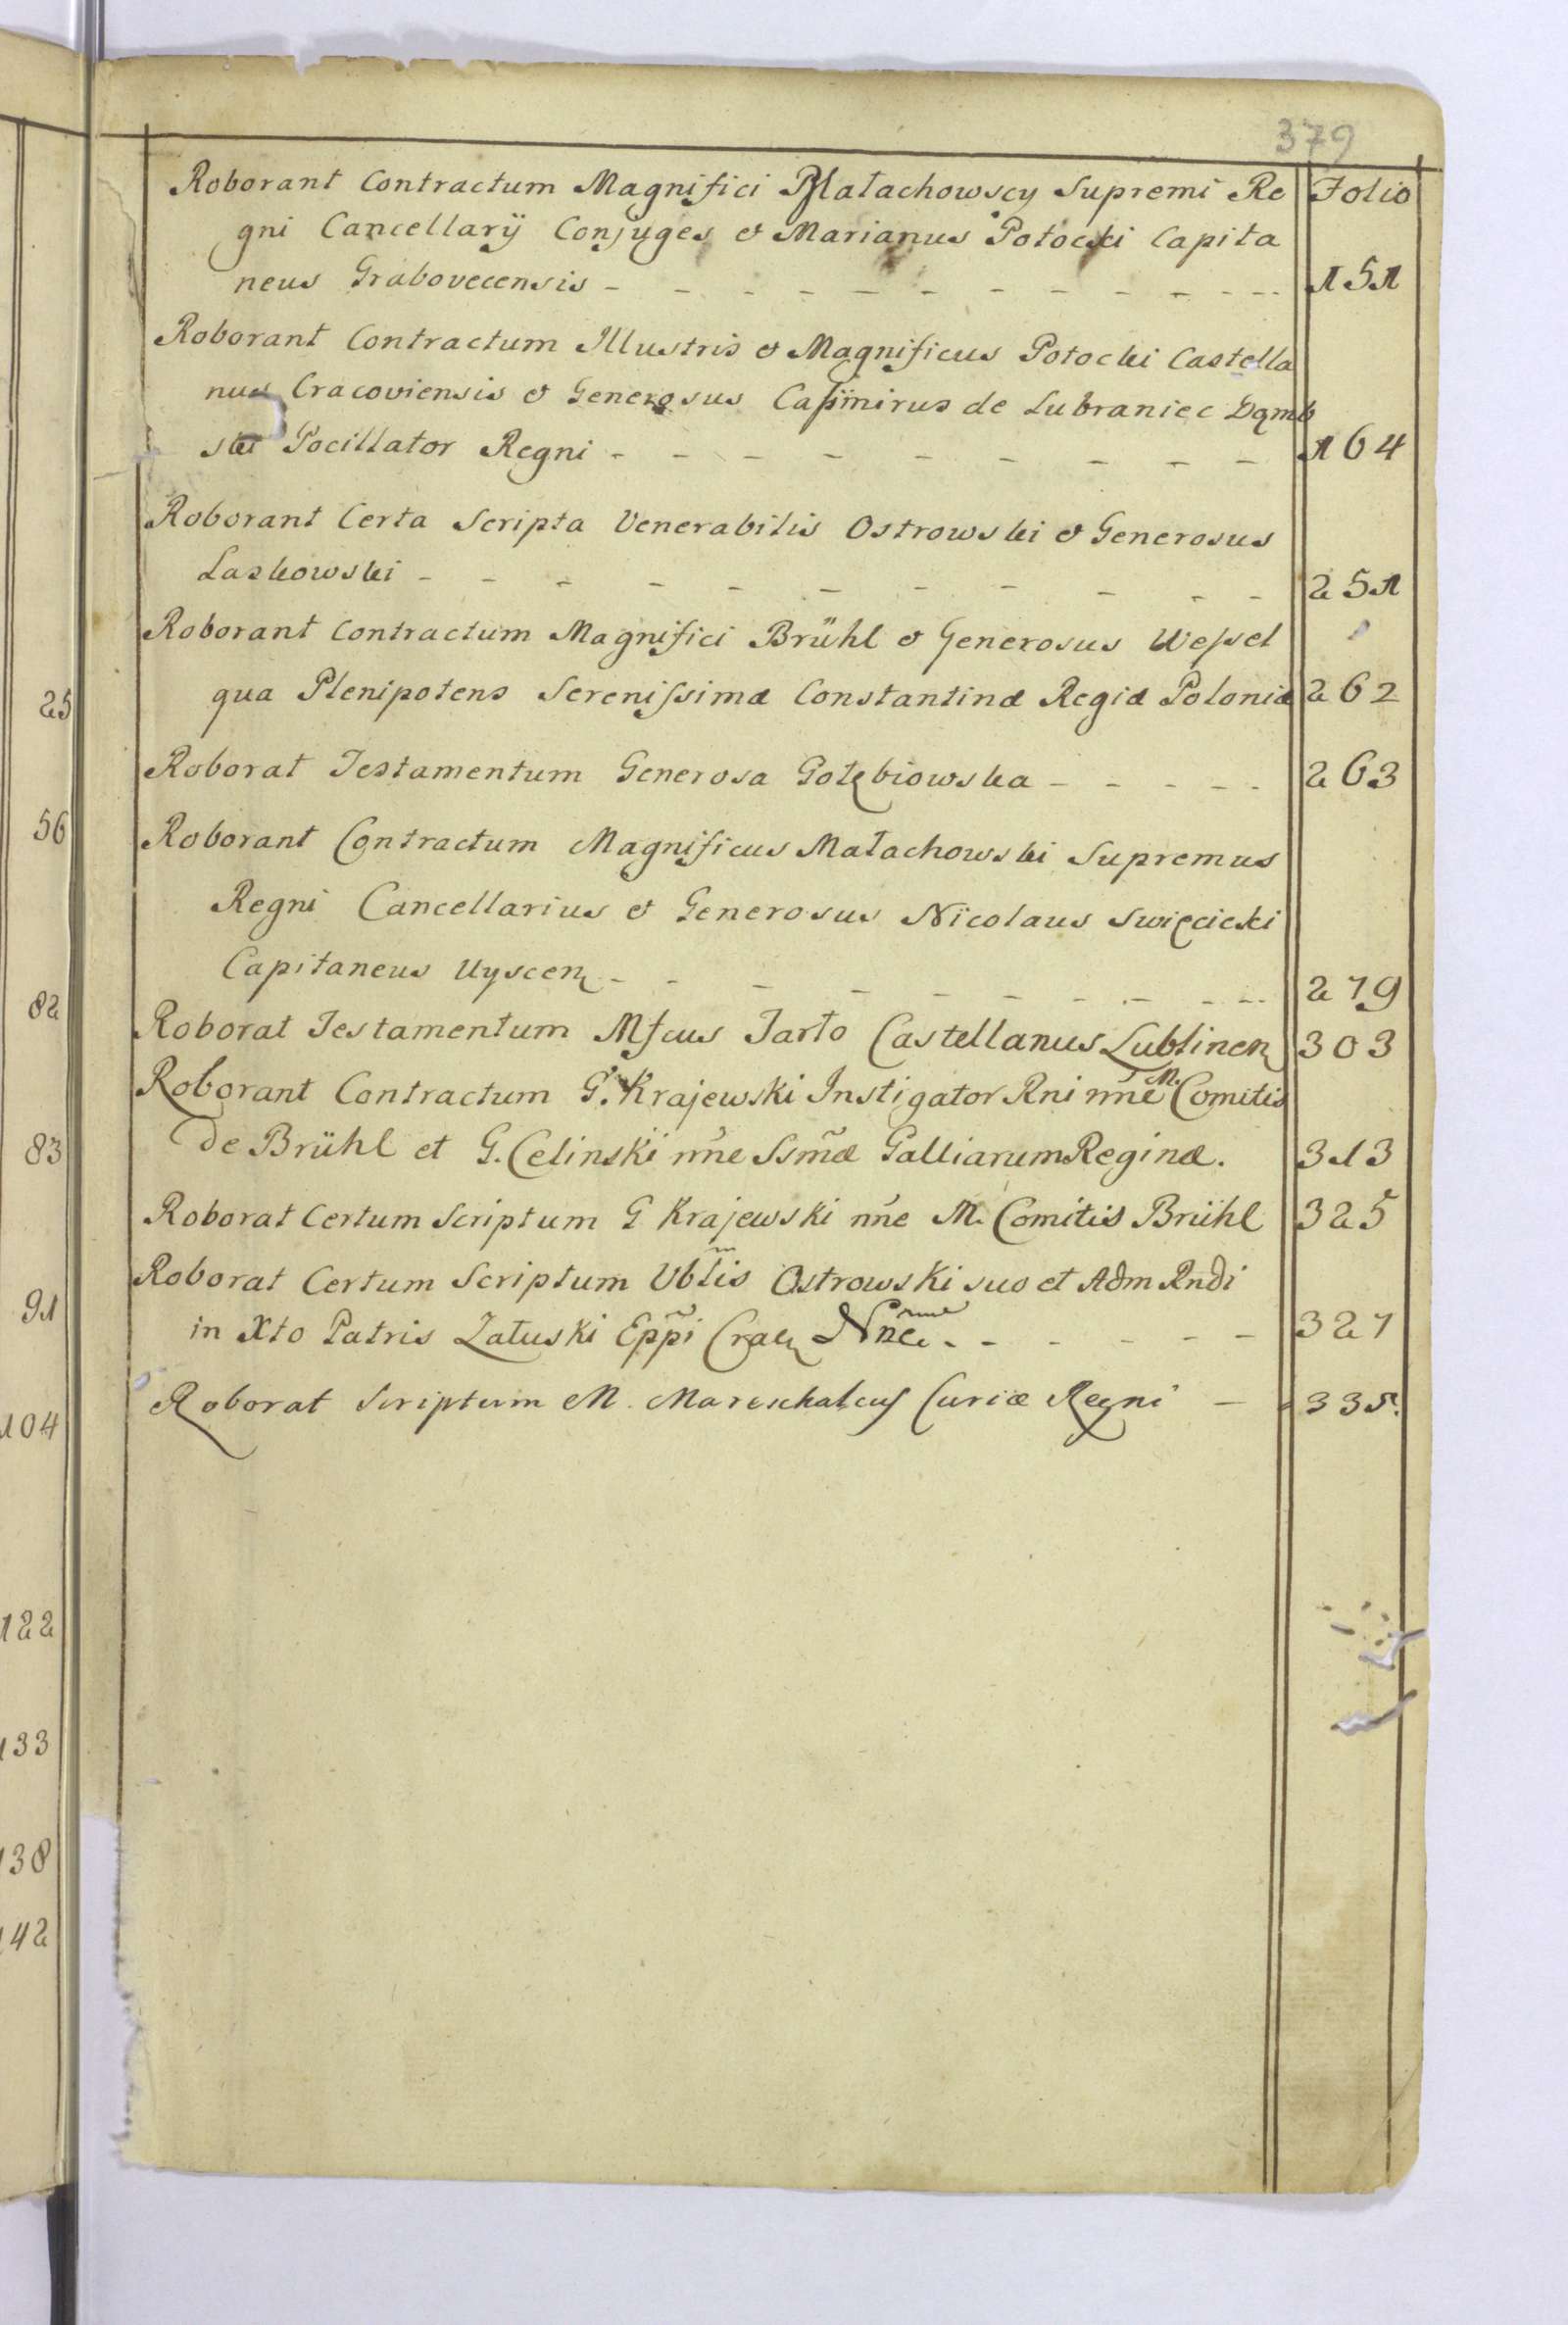 379
Folio
Roborant Contractum Magnifici Małachowscy Supremi Re
gni Cancellarij Conjuges & Marianus Potocki Capita
neus Grabovecensis - - - - - - - - - - - - 151
Roborant Contractum Illustris & Magnificus Potocki Castella
nus Cracoviensis & Generosus Caſimirus de Lubraniec Dąmb
ski Pocillator Regni - - - - - - - - - 164
Roborant Certa Scripta Venerabilis Ostrowski & Generosus
Laskowski - - - - - - - - - - - 251
Roborant Contractum Magnifici Brühl & Generosus Weſsel
qua Plenipotens Sereniſsimæ Constantinæ Regiæ Poloniæ 262
Roborat Testamentum Generosa Gołębiowska - - - - - 263
Roborant Contractum Magnificus Małachowski Supremus
Regni Cancellarius & Generosus Nicolaus Swięcicki
Capitaneus Uyscen - - - - - - - - - - 279
Roborat Testamentum Mfcus Tarło Castellanus Lublinen 303
Roborant Contractum G. Krajewski Instigator Rni nñe M. Comitis
de Brühl et G. Celinski nñe Ssmæ Galliarum Reginæ. 313
Roborat Certum Scriptum G Krajewski nñe M. Comitis Brühl 325
Roborat Certum Scriptum Vblis Ostrowski suo et Adm Rndi
in Xto Patris Załuski Eppi Crac Nñe. - - - - - - 327
Roborat Scriptum M. Mareschalcus Curiæ Regni - 335.
25
56
82
83
91
104
122
133
138
142